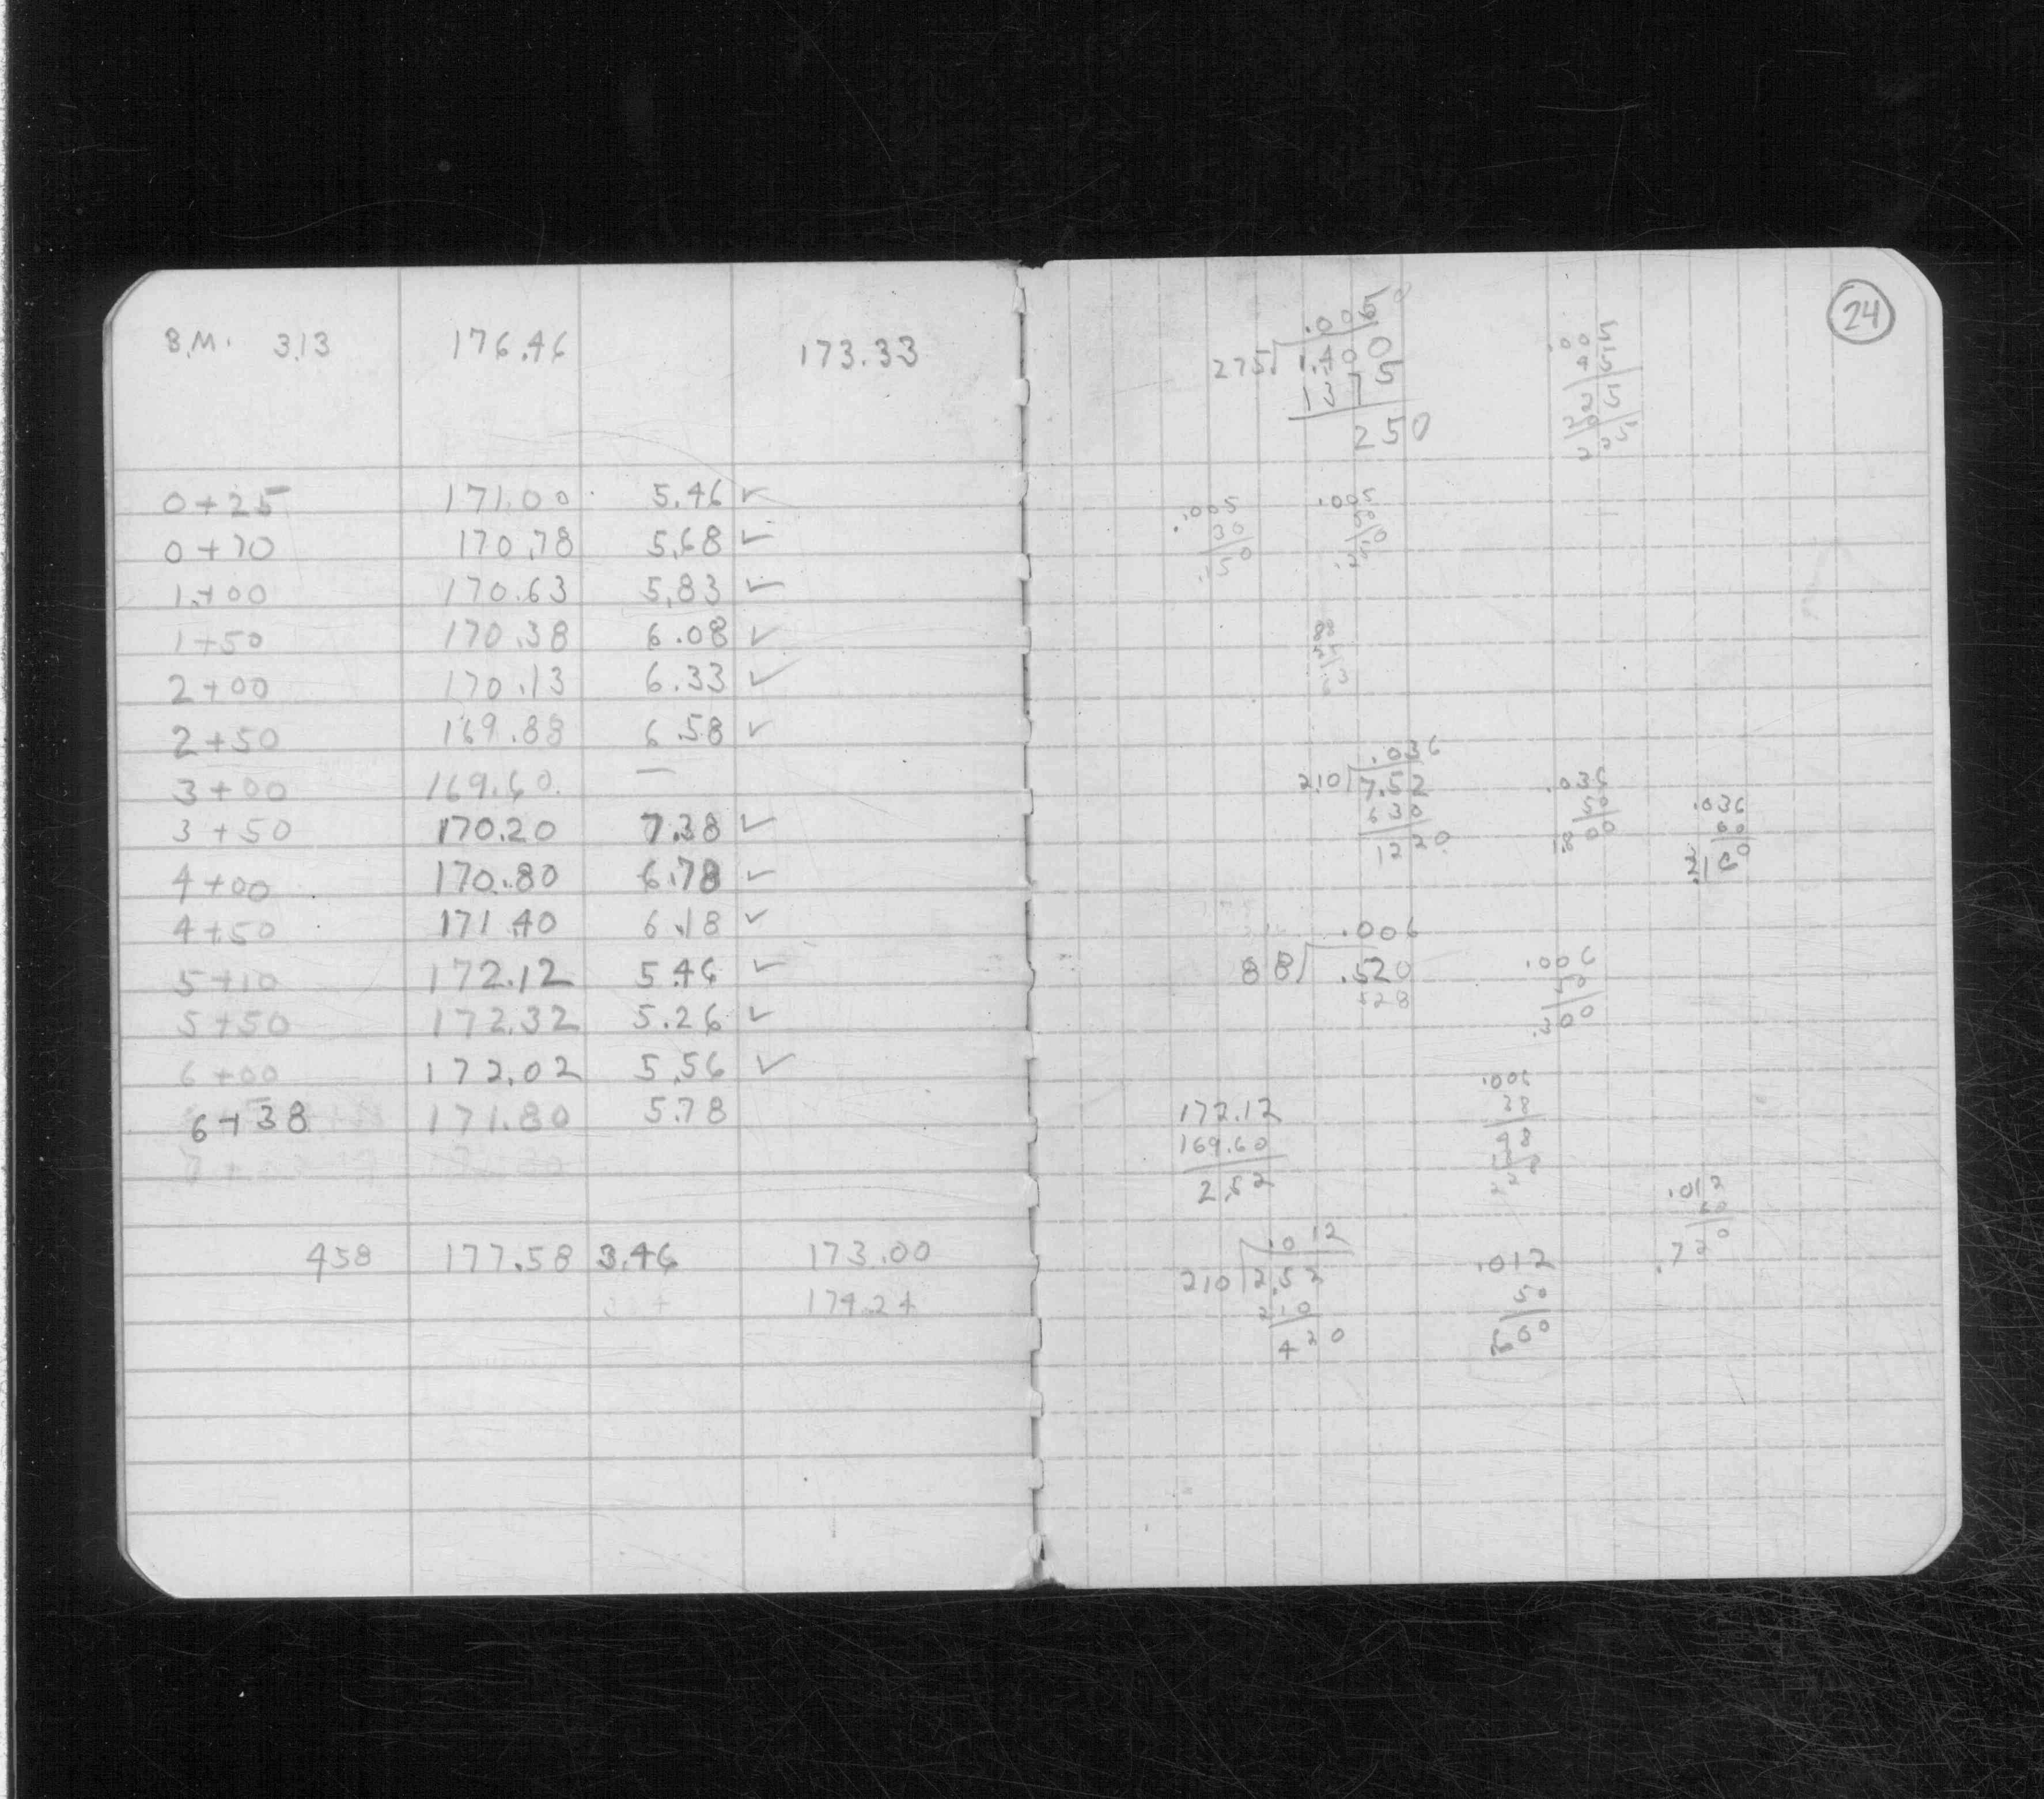 B.M. 3.13 176.46 173.33
0+25 171.00 5.46 ✓
0+70 170.78 5.68 ✓
1+00 170.63 5.83 ✓
1+50 170.38 6.08 ✓
2+00 170.13 6.33 ✓
2+50 169.88 6.58 ✓
3+00 169.60 —
3+50 170.20 7.38 ✓
4+00 170.80 6.78 ✓
4+50 171.40 6.18 ✓
5+10 172.12 5.46 ✓
5+50 172.32 5.26 ✓
6+00 172.02 5.56 ✓
6+38 171.80 5.78
458 177.58 3.46 173.00
174.24
24
.0050
275 1.400
1375
250
.005
45
225
.005
30
.150
.005
50
.250
.036
210 7.52
630
1220
.036
50
1.800
.036
60
2.160
.006
88 .520
528
.006
50
.300
172.12
169.60
2.52
.006
38
.012
210 2.52
210
420
.012
50
.600
.012
60
.720